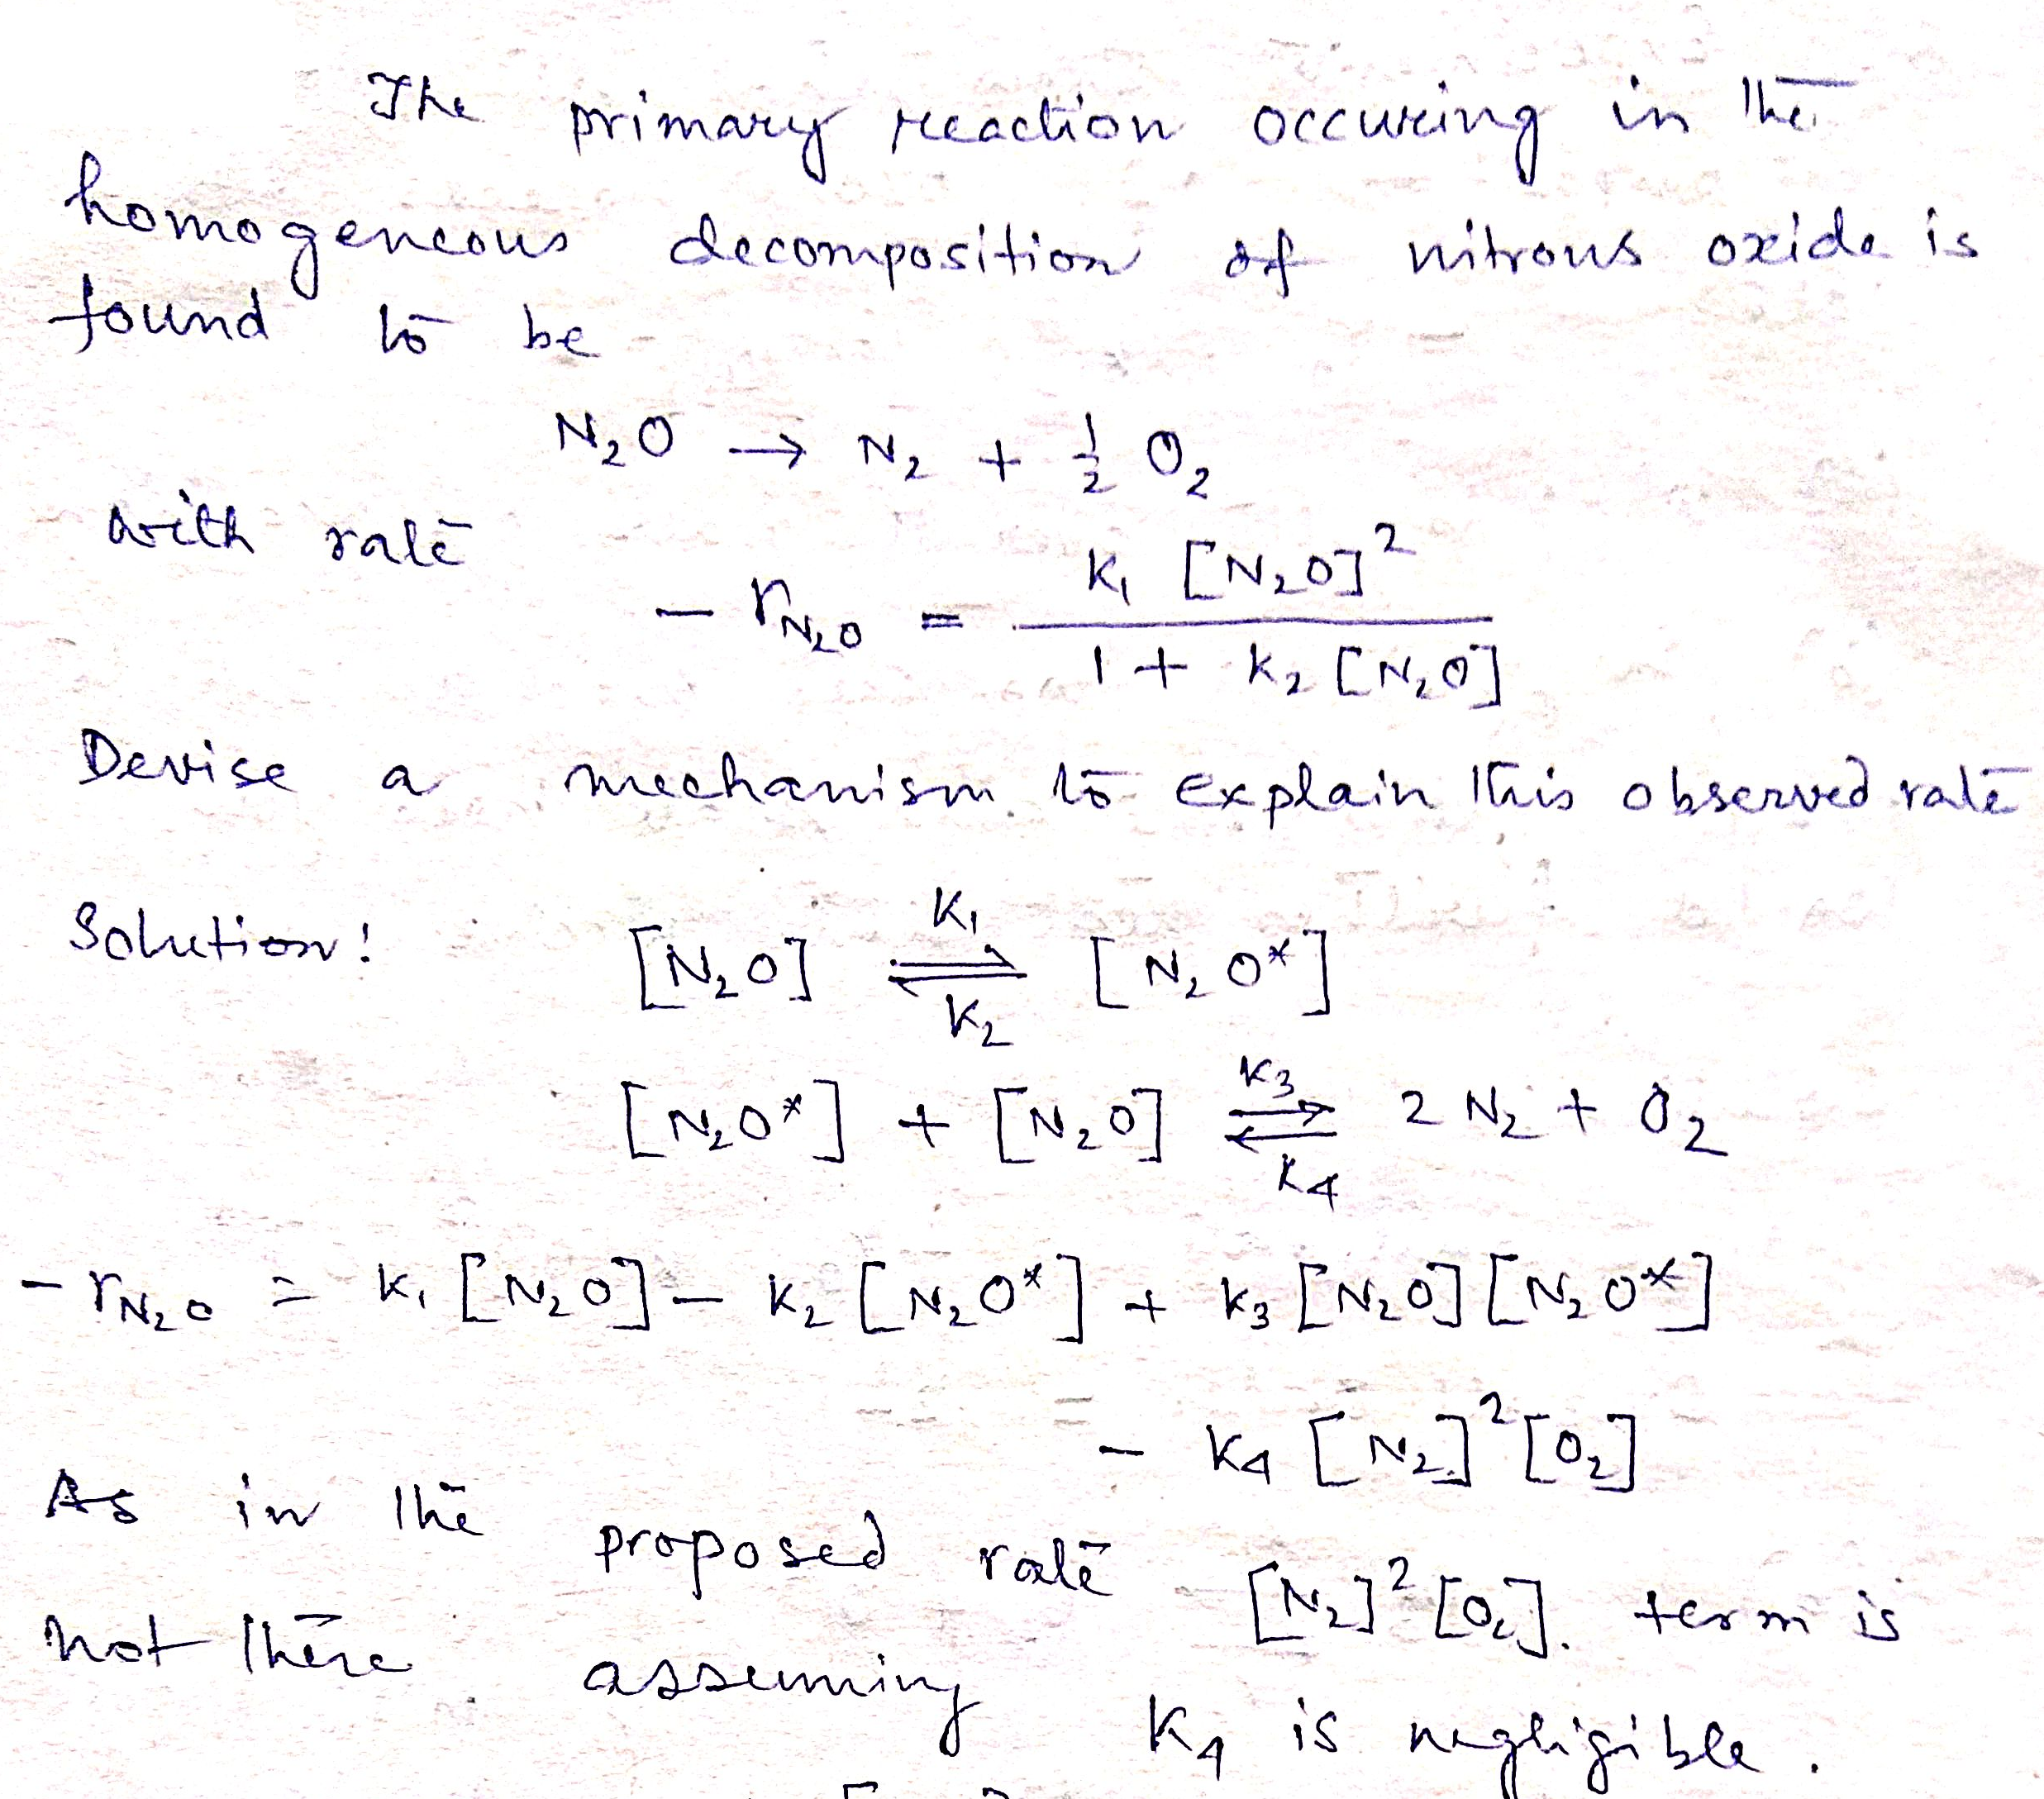 The primary reaction occuring in the
homogeneous decomposition of nitrous oxide is
found to be
N₂O → N₂ + ½ O₂
with rate
- r_N₂O = k₁ [N₂O]² / 1 + k₂ [N₂O]
Devise a mechanism to explain this observed rate
Solution: [N₂O] ⇌ [N₂O*] K₁ K₂
[N₂O*] + [N₂O] ⇌ 2 N₂ + O₂ K₃ K₄
- r_N₂O = K₁ [N₂O] - K₂ [N₂O*] + K₃ [N₂O] [N₂O*]
- K₄ [N₂]² [O₂]
As in the proposed rate [N₂]² [O₂] term is
not there assuming K₄ is negligible.